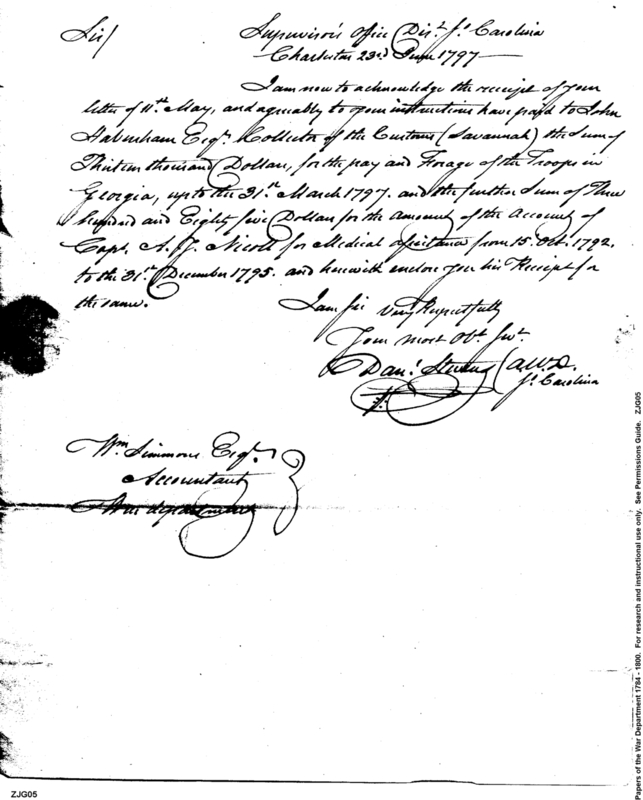 Sir/ Supervisor's Office Dist. So. Carolina
Charleston 23rd June 1797
I am now to acknowledge the receipt of your
letter of 11th May, and agreeably to your instructions have paid to John
Habersham Esqr. Collector of the Customs (Savannah) the Sum of
Thirteen thousand Dollars, for the pay and Forage of the Troops in
Georgia, up to the 31st March 1797. and the further Sum of Three
hundred and Eighty five Dollars for the Amount of the Account of
Capt. A. Y. Nicoll for Medical assistance from 15 Oct. 1792.
to the 31st December 1795. and herewith enclose you his Receipt for
the same.
I am sir very Respectfully
Your most Obt. Svt.
Danl. Stevens A.W.D.
So. Carolina
Wm. Simmons Esqr.
Accountant
War department
Papers of the War Department 1784 - 1800. For research and instructional use only. See Permissions Guide. ZJG05
ZJG05